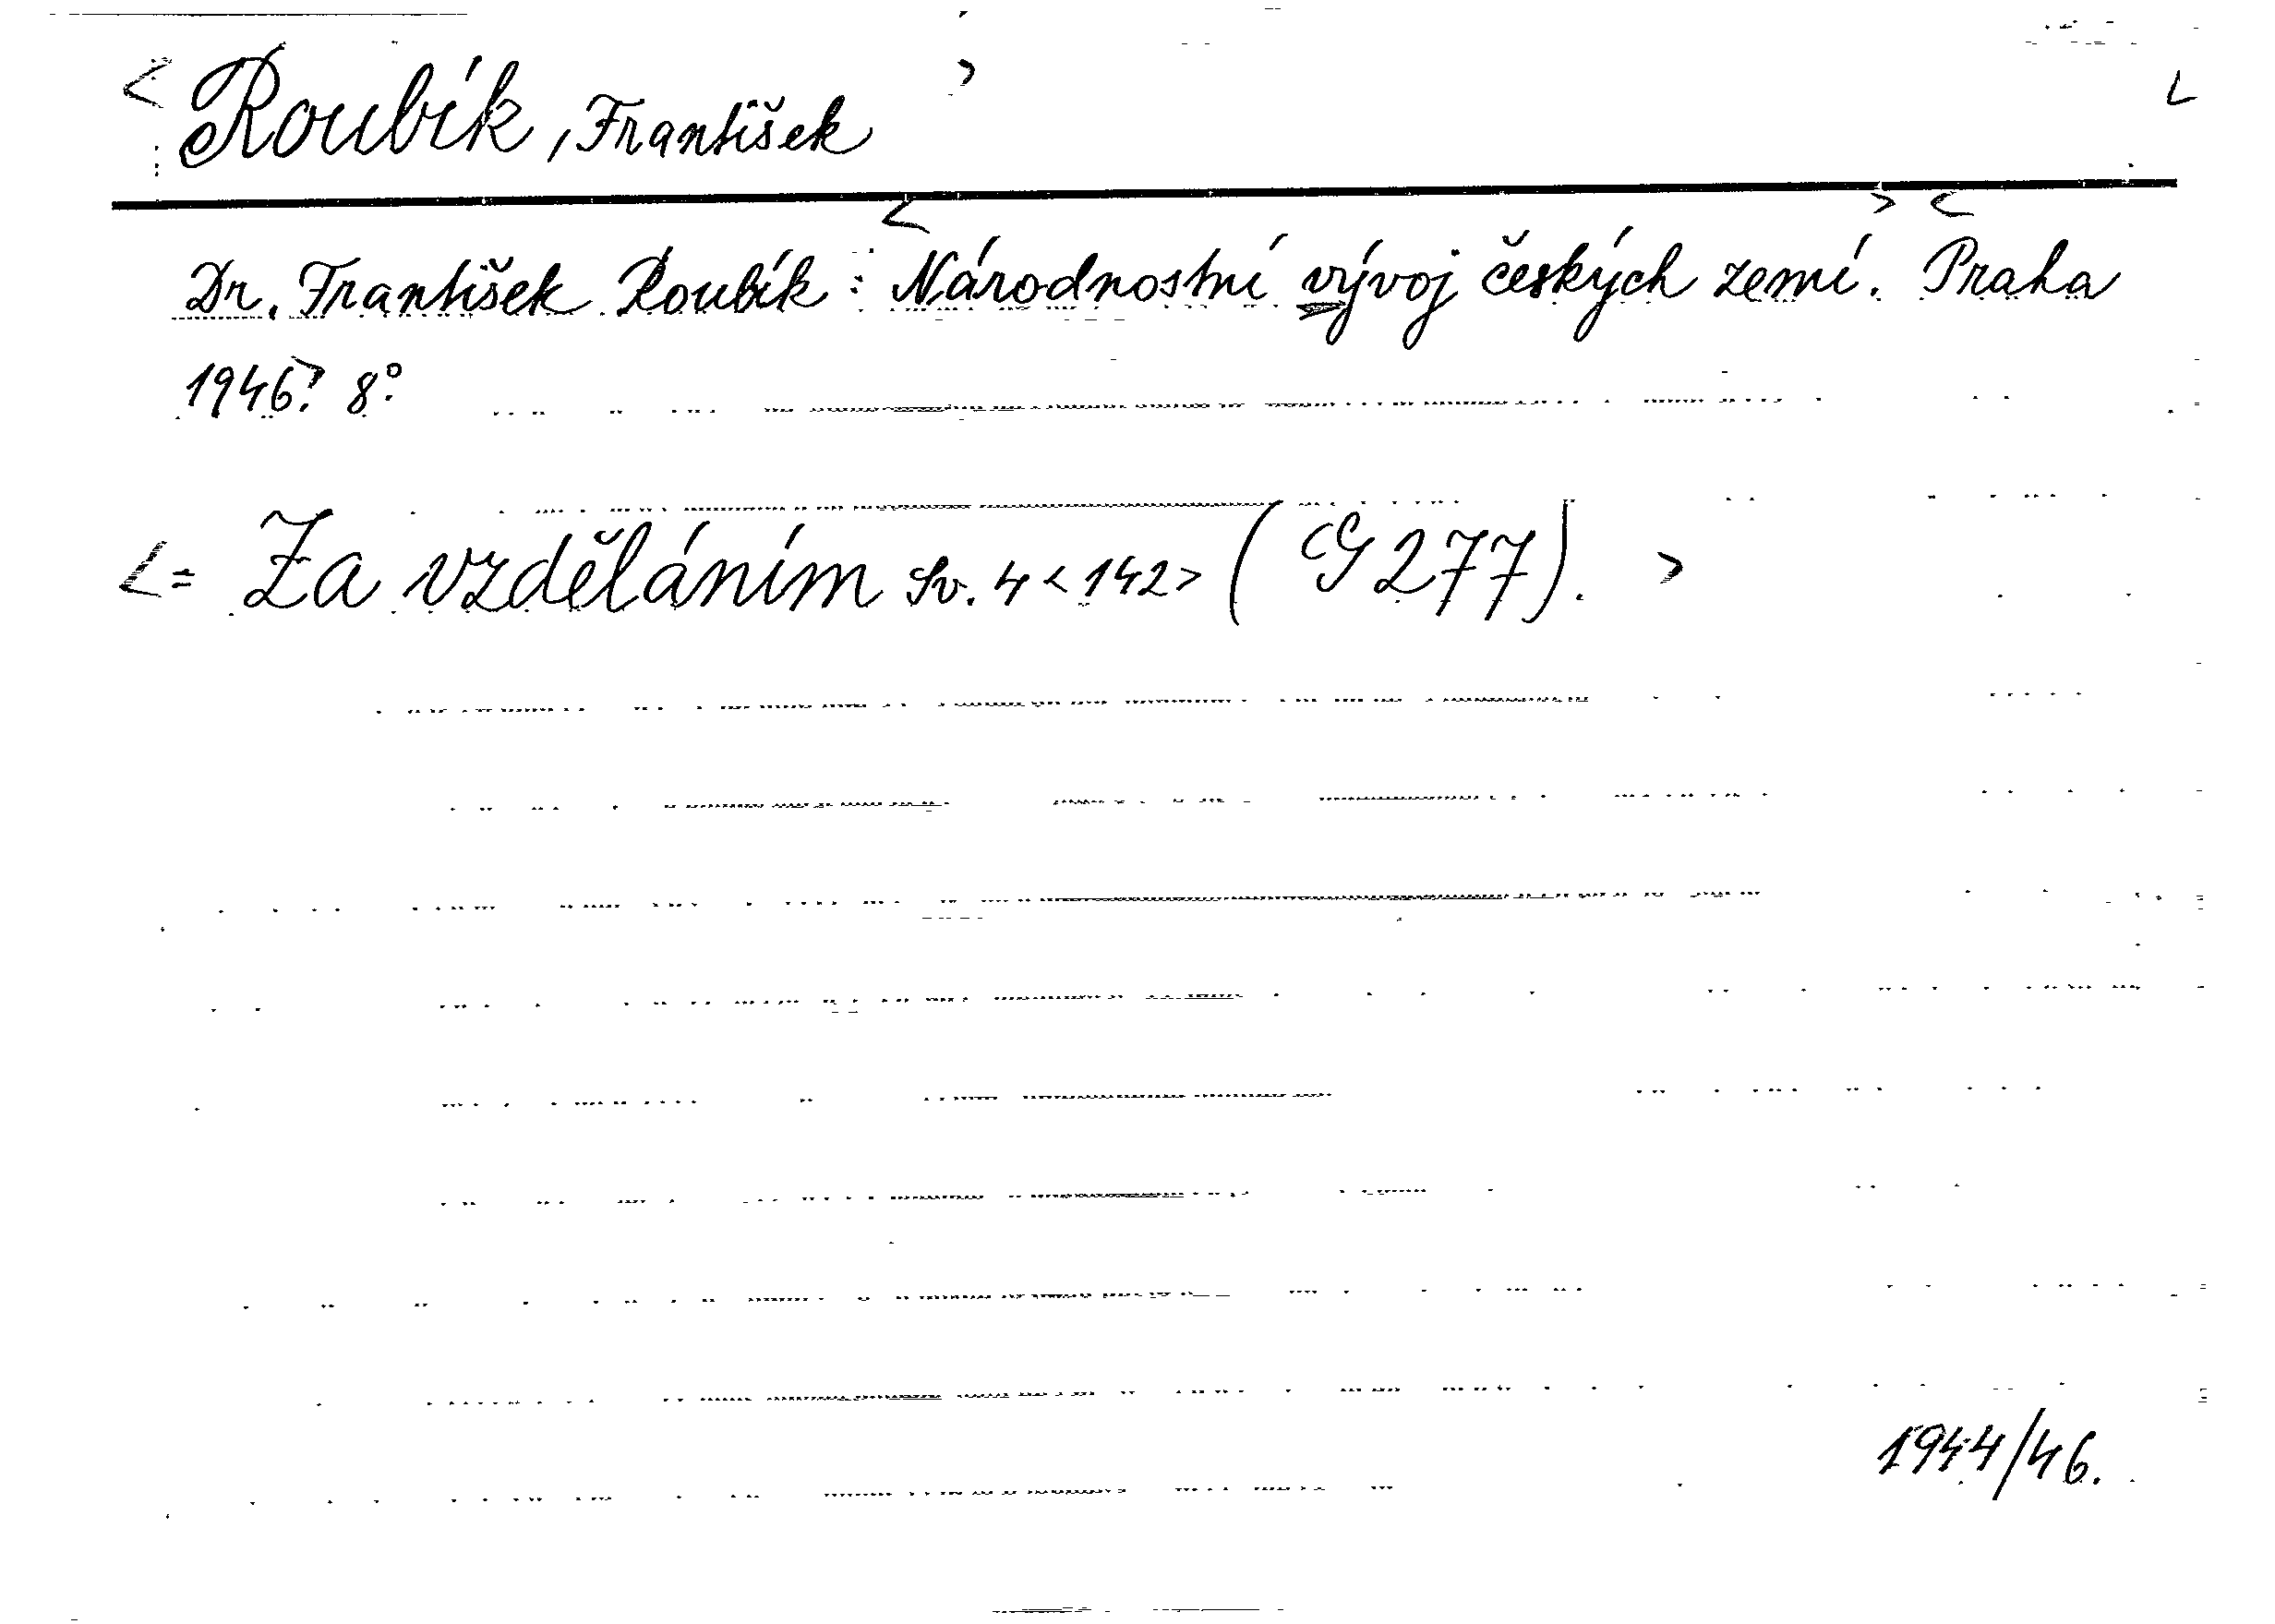 < Roubík, František > <
Dr. František Roubík: < Národnostní vývoj českých zemí. > < Praha
1946. > 8°.
< = Za vzděláním Sv. 4 < 142 > (G 277). >
1944/46.